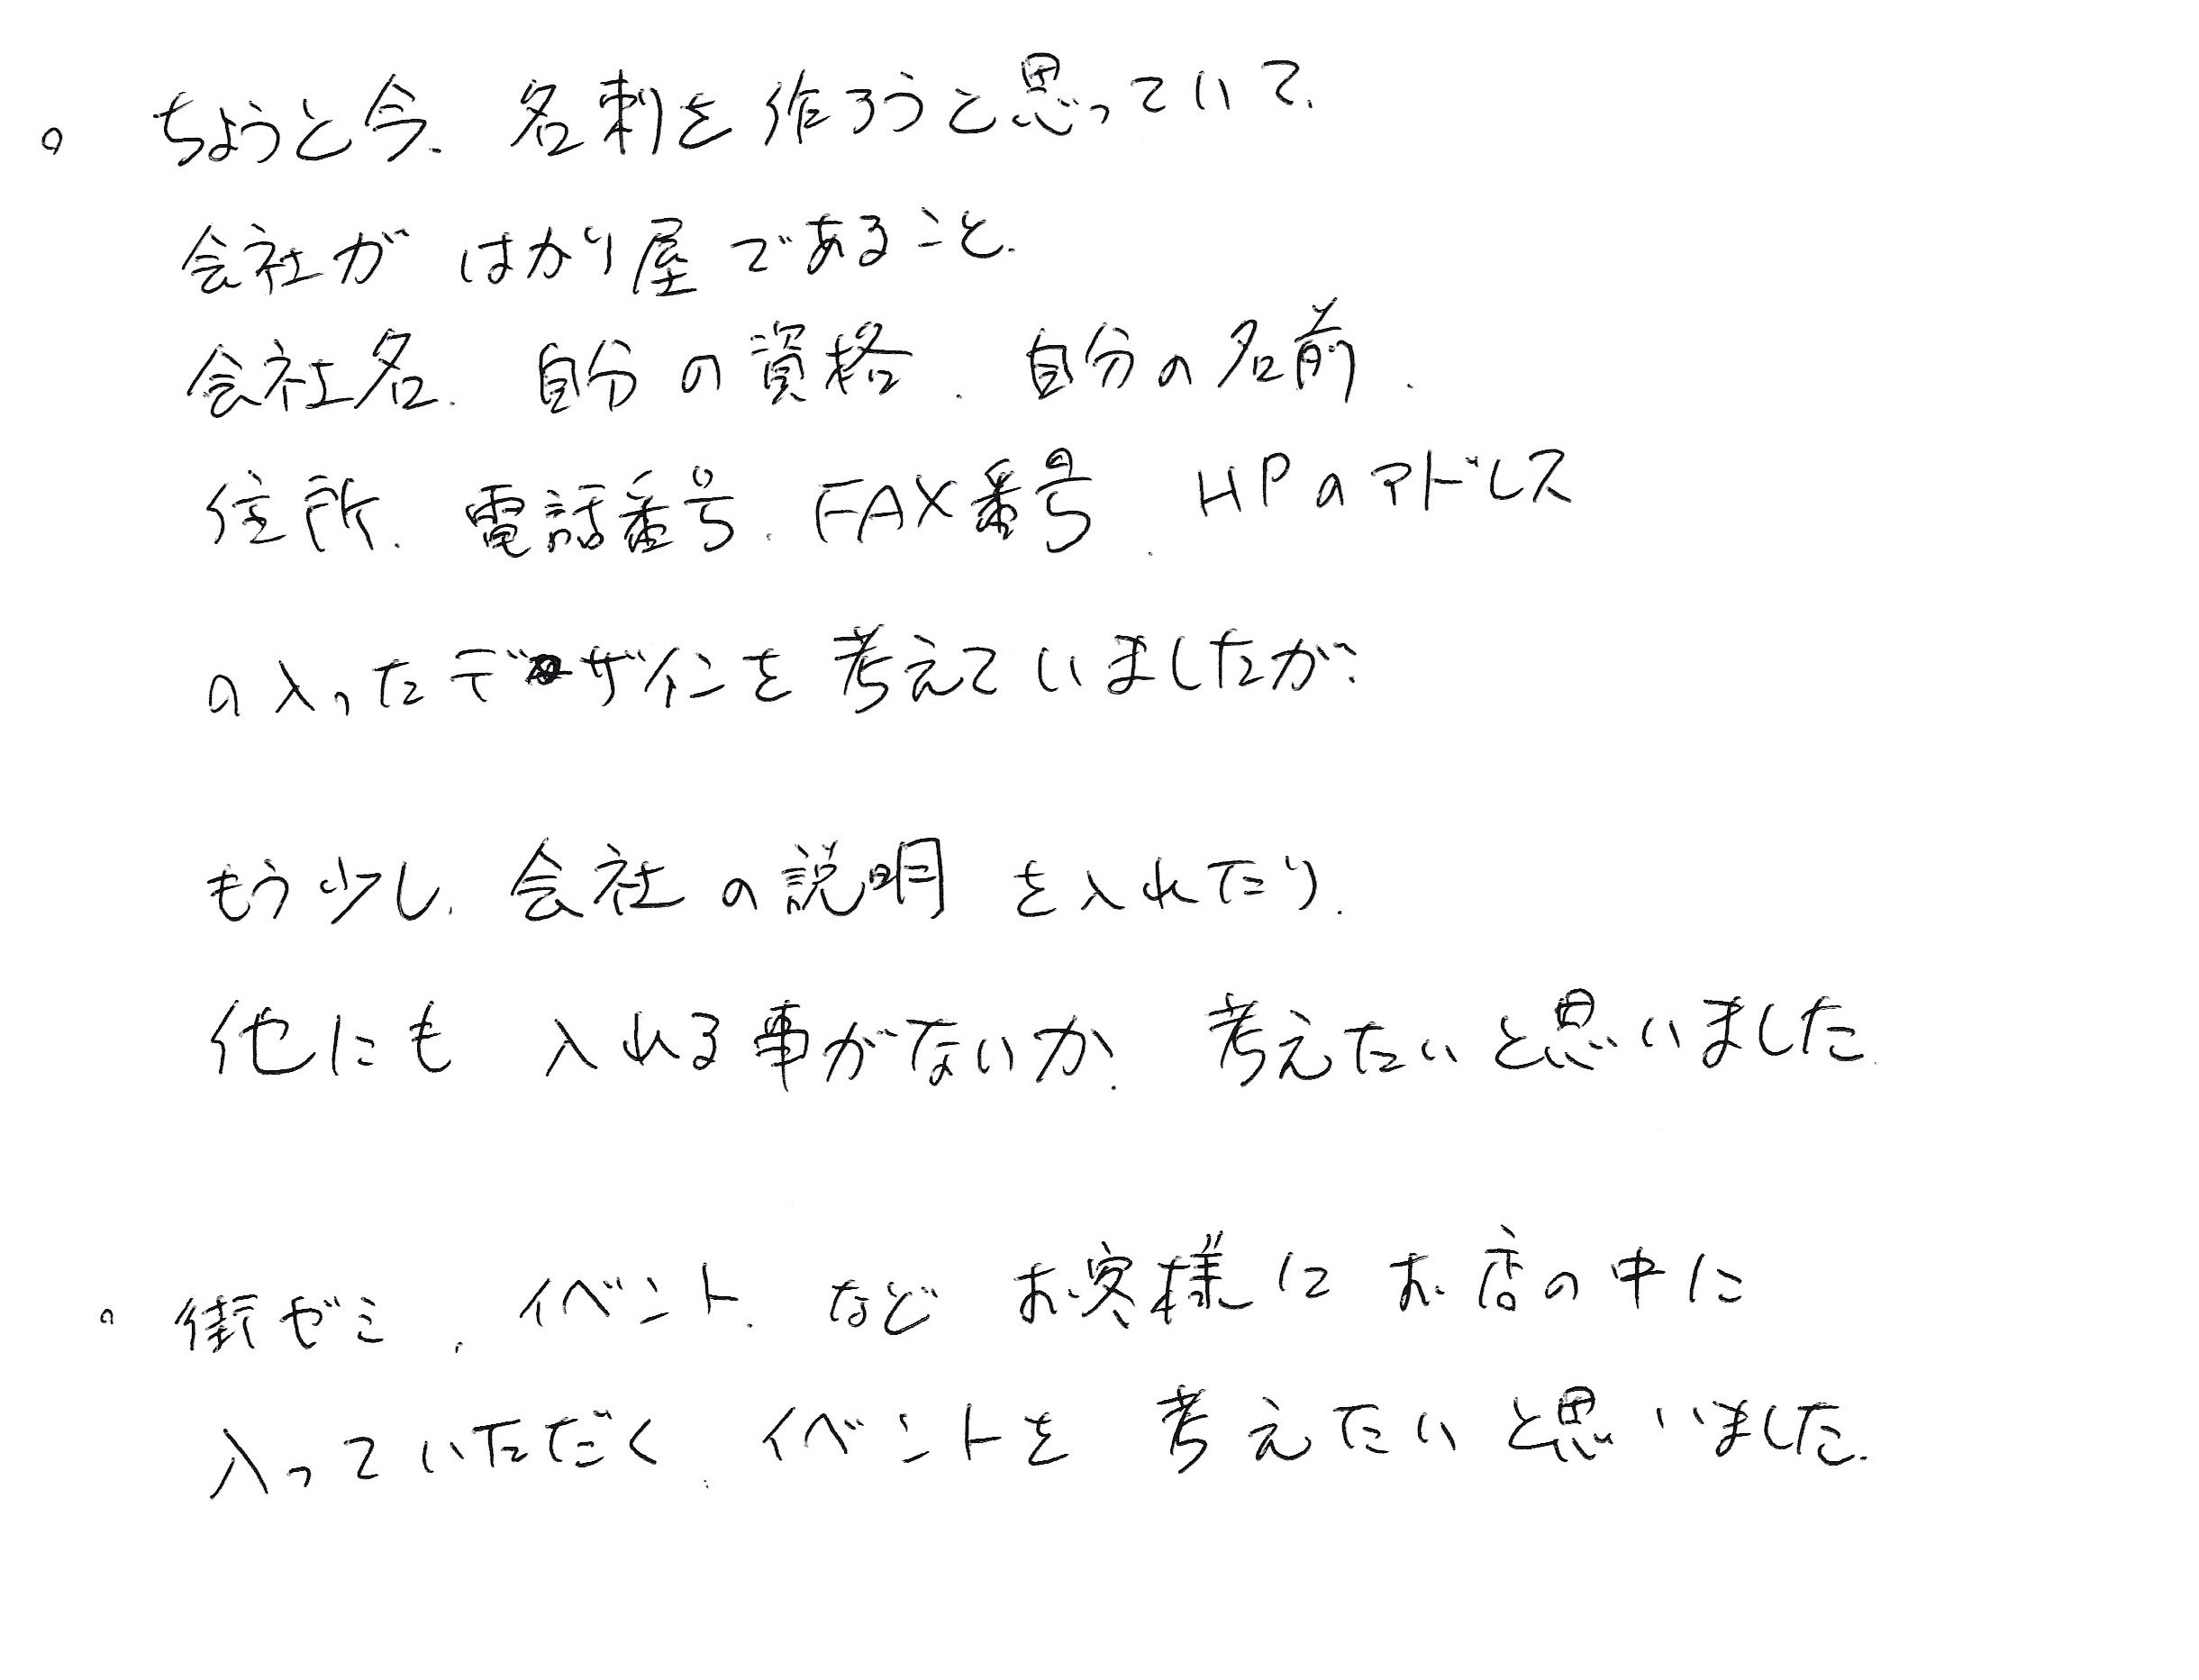 。ちょうど今、名刺を作ろうと思っていて、
会社が はかり屋であること、
会社名、自分の資格、自分の名前、
住所、電話番号、FAX番号、HPのアドレス
の入ったデザインを考えていましたが、
もう少し、会社の説明を入れたり、
他にも 入れる事がないか、考えたいと思いました。
。街ゼミ、イベント、など お客様に お店の中に
入っていただく、イベントを 考えたいと思いました。